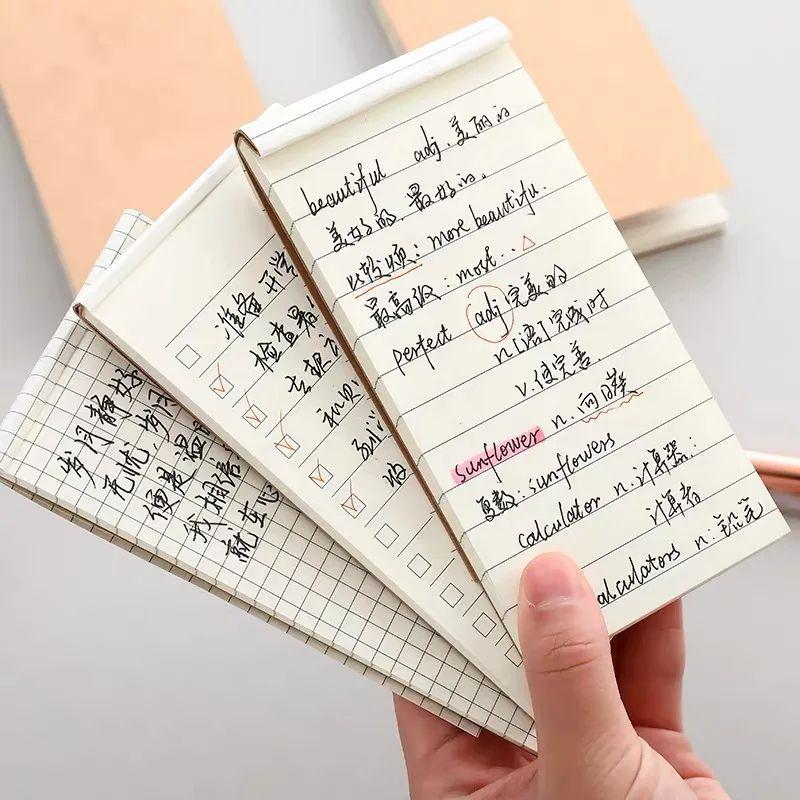 beautiful adj. 美丽的
美好的. 最好的.
比较级: more beautiful.
最高级: most..△
perfect adj 完美的
n [语] 完成时
v. 使完善.
sunflower n. 向日葵
复数: sunflowers
calculator n. 计算器;
计算者
alculators n:
准备开学
检查暑
去报
和
到
岁月静好
无忧 岁月
便是温
我相信
就在心